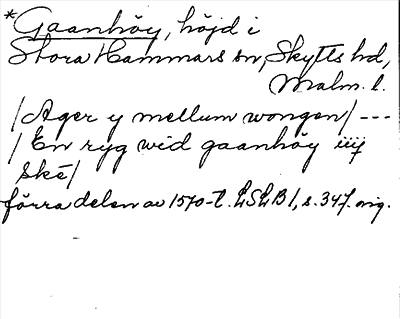 *Gaanhöy, höjd i
Stora Hammars sn, Skytts hd,
Malm. l.
/Ager y mellum wongen/ ---
/ En ryg wid gaanhöy iiij
ske/
förra delen av 1570-t. LSLB 1, s. 347. orig.